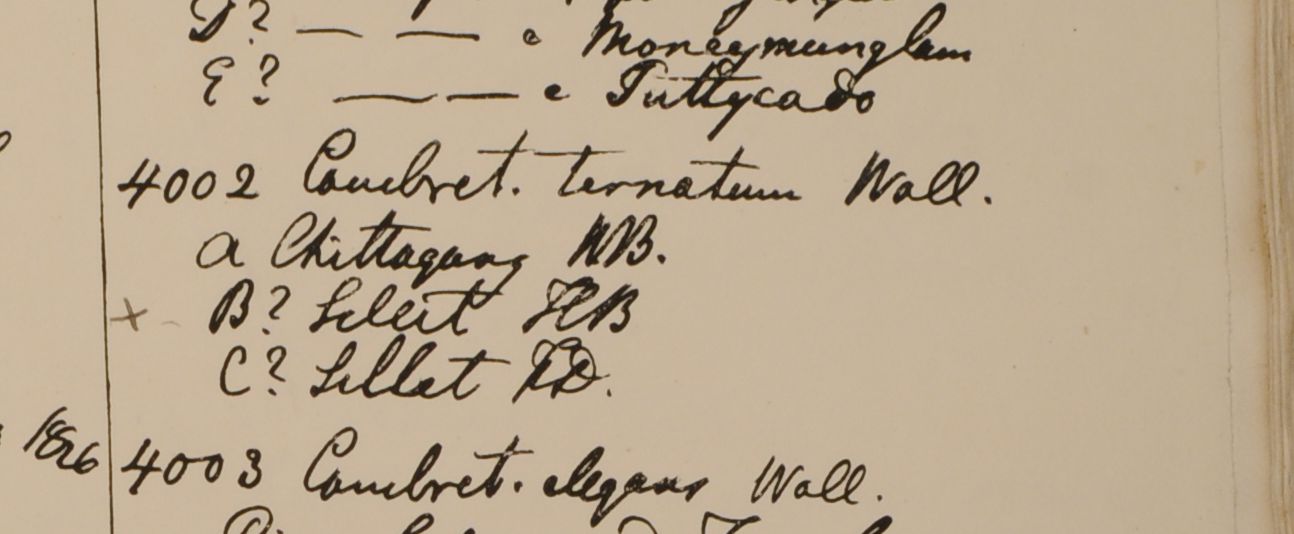 D? — — e Moneymunglum
E? — — e Tuttycado
4002 Combret. ternatum Wall.
a Chittagong HB.
B? Sillet HB
C? Sillet FD.
1826
4003 Combret. elegans Wall.